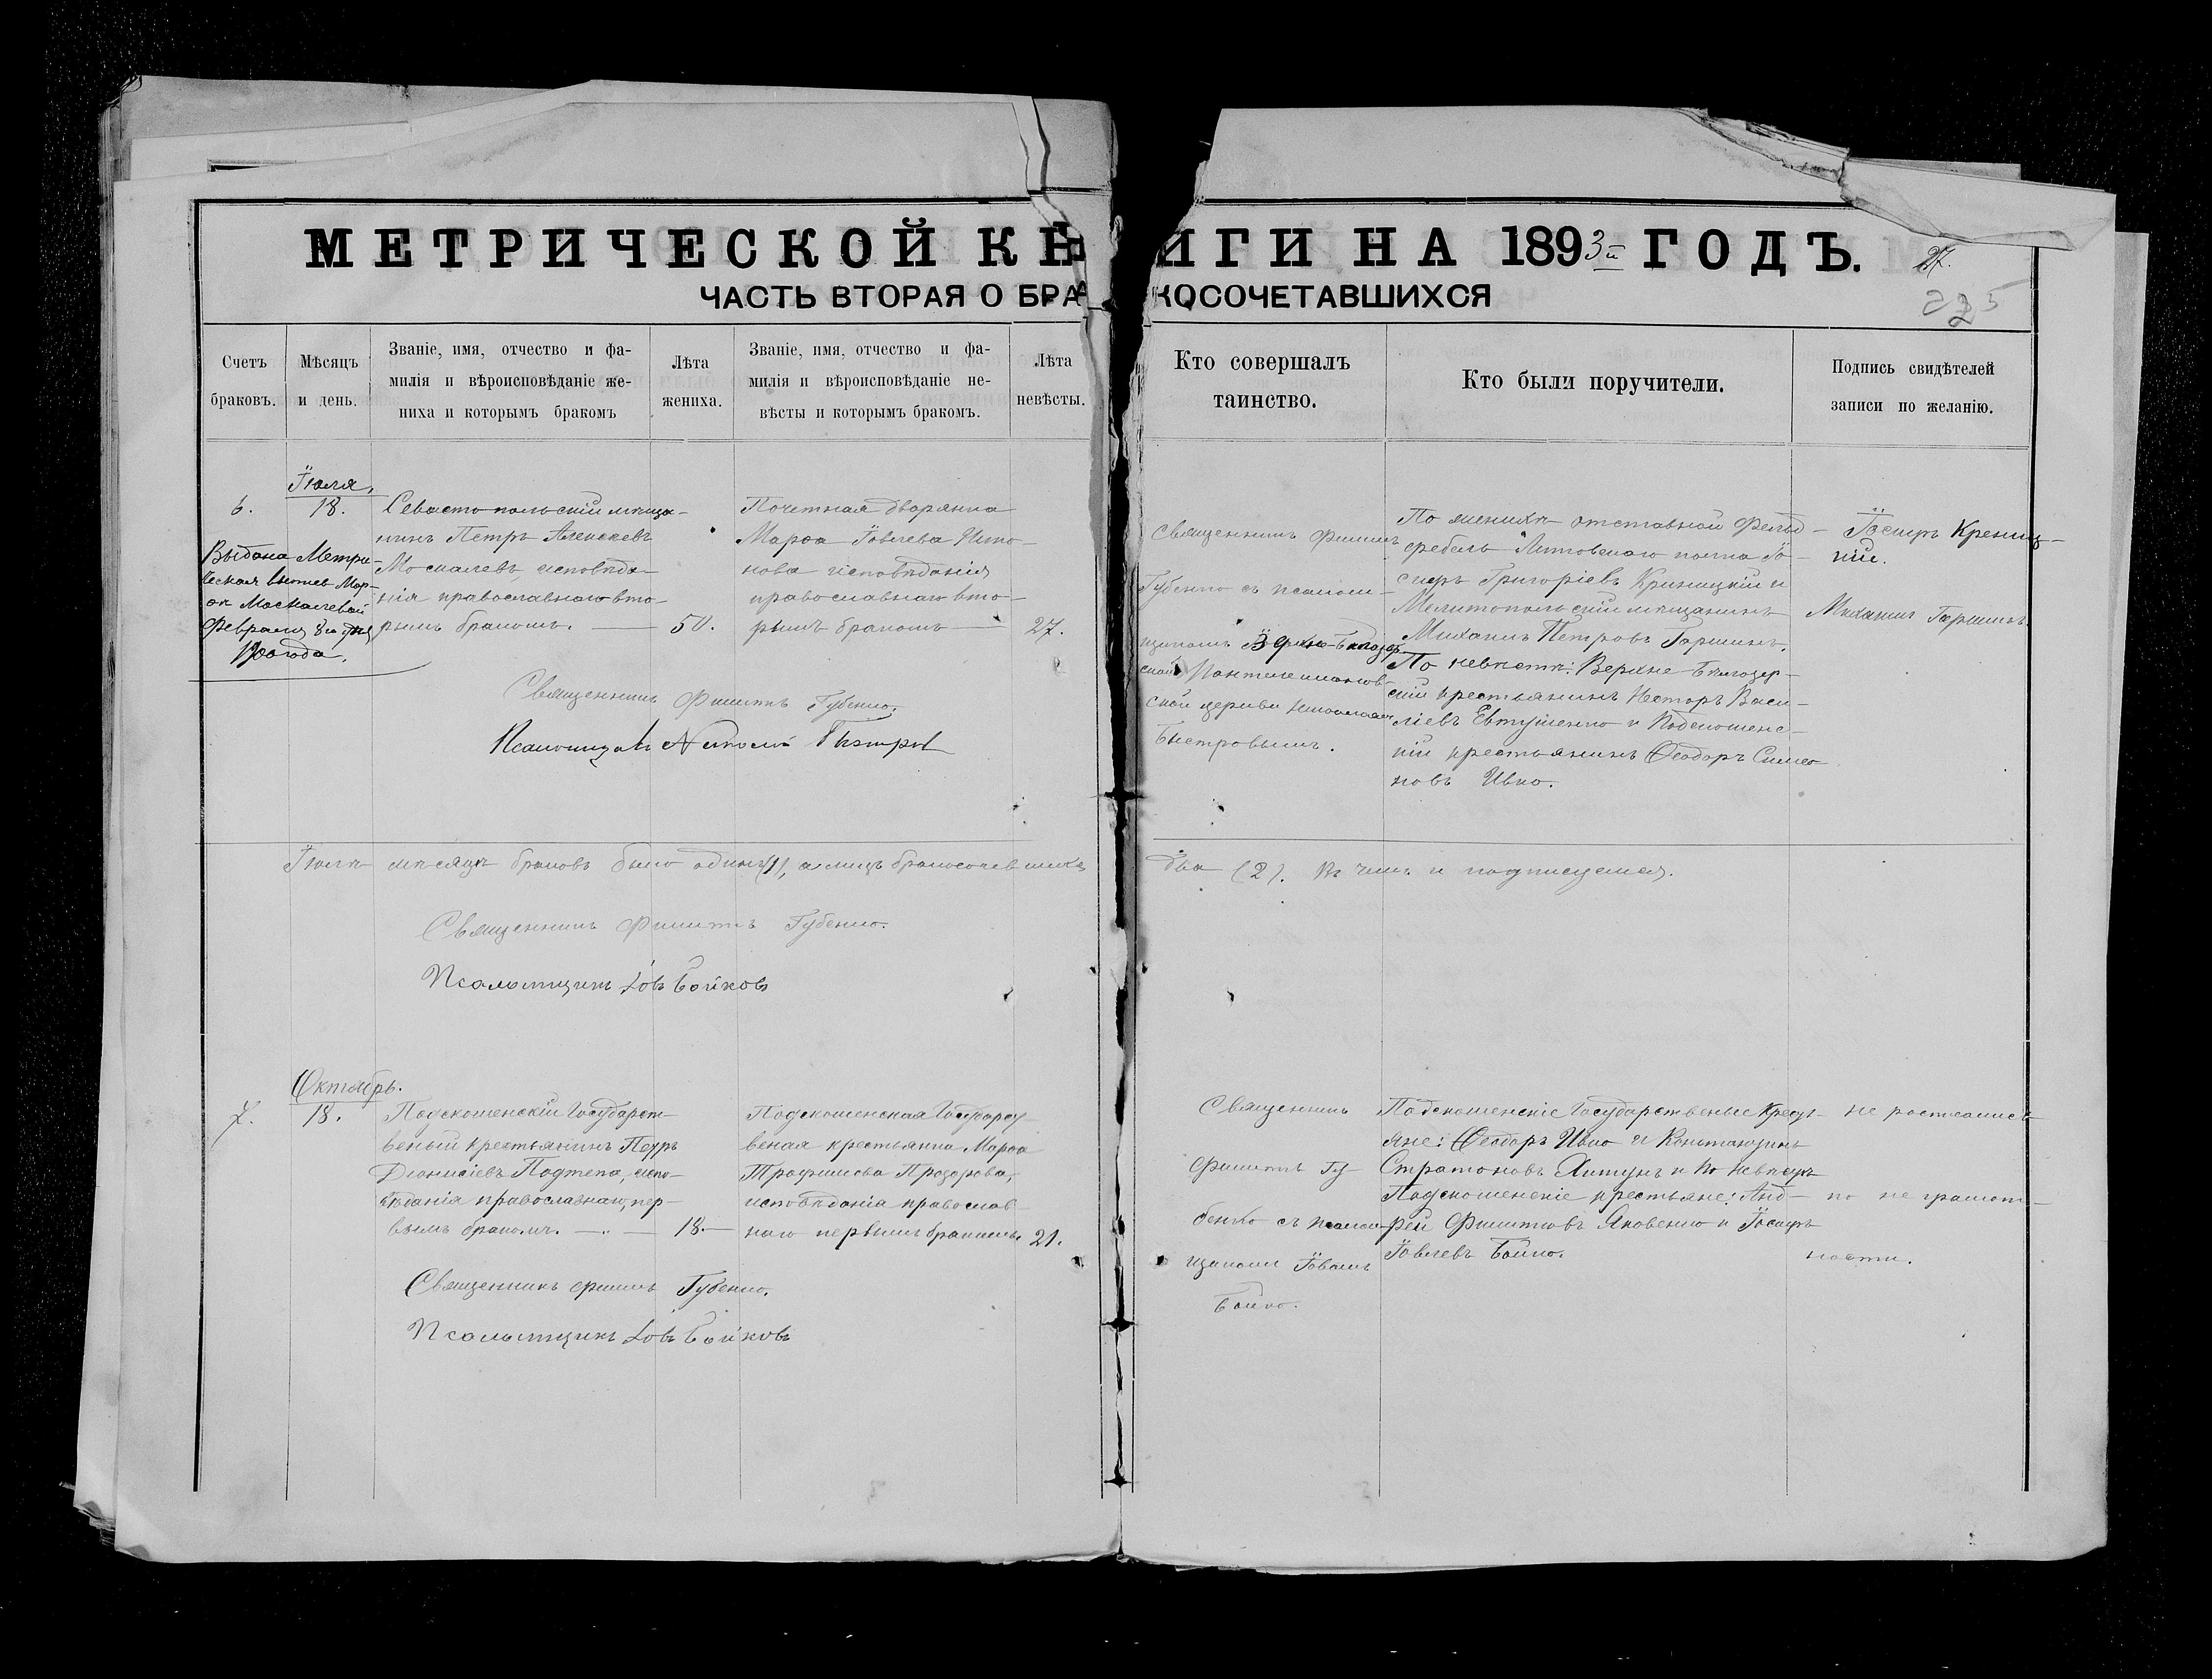 МЕТРИЧЕСКОЙ КНИГИ НА 1893й ГОДЪ.
27.
ЧАСТЬ ВТОРАЯ О БРАКОСОЧЕТАВШИХСЯ
Счетъ
браковъ.
Мѣсяцъ
и день.
Званіе, имя, отчество и фа-
милія и вѣроисповѣданіе же-
ниха и которымъ бракомъ
Лѣта
жениха.
Званіе, имя, отчество и фа-
милія и вѣроисповѣданіе не-
вѣсты и которымъ бракомъ.
Лѣта
невѣсты.
Кто совершалъ
таинство.
Кто были поручители.
Подпись свидѣтелей
записи по желанію.
6.
Іюля,
18.
Выдана Метри-
ческая
Москалевой
Февраля
года.
Севастопольскій мѣща-
нинъ Петръ Алексѣевъ
Москалевъ, исповѣда-
нія православнаго вто-
рымъ бракомъ.
50.
Почетная дворянка
Марѳа Іовлева
нова исповѣданія
православнаго вто-
рымъ бракомъ
27.
Священникъ Филиппъ
Губенко съ псалом-
щикомъ Верхне-Бѣлозер-
ской Пантелеимонов-
ской церкви Николаем
Быстровымъ.
По женихѣ отставной Фельд-
фебель Литовскаго полка Іо-
сифъ Григоріевъ Криницкій и
Мелитопольскій мѣщанинъ
Михаилъ Петровъ Гаршинъ.
По невѣстѣ: Верхне-Бѣлозер-
скій крестьянинъ Несторъ Васи-
ліевъ Евтушенко и Подскошенс-
кій крестьянинъ Ѳеодоръ Симео
новъ Ивко.
Іосифъ Крениц-
кій.
Михаилъ Гаршинъ.
Священникъ Филиппъ Губенко.
Псаломщикъ Николай
Іюлѣ мѣсяцѣ браковъ было одинъ (1), а лицъ два (2). Въ чемъ и подписуемся.
Священникъ Филиппъ Губенко.
Псаломщикъ Іовъ Бойковъ
7.
Октябрь.
18.
Подскошенскій Государст-
веный крестьянинъ Петръ
Діонисіевъ Подтепа, испо-
вѣданія православнаго, пер-
вымъ бракомъ.
18.
Подскошенская Государст
веная крестьянка Марѳа
Трофимова Прозорова,
исповѣданія православ
наго первымъ бракомъ.
21.
Священникъ
Филиппъ Гу
бенко съ псалом-
щикомъ Іовомъ
Бойко.
Подскошенскіе Государственые Крест-
яне: Ѳеодоръ Ивко и Константинъ
Стратоновъ и по невѣстѣ
Подскошенскіе крестьяне: Анд-
рей Филиповъ Яковенко и Іосифъ
Іовлевъ Бойко.
не росписались
по не грамот-
ности.
Священникъ Филипъ Губенко.
Псаломщикъ Іовъ Бойковъ